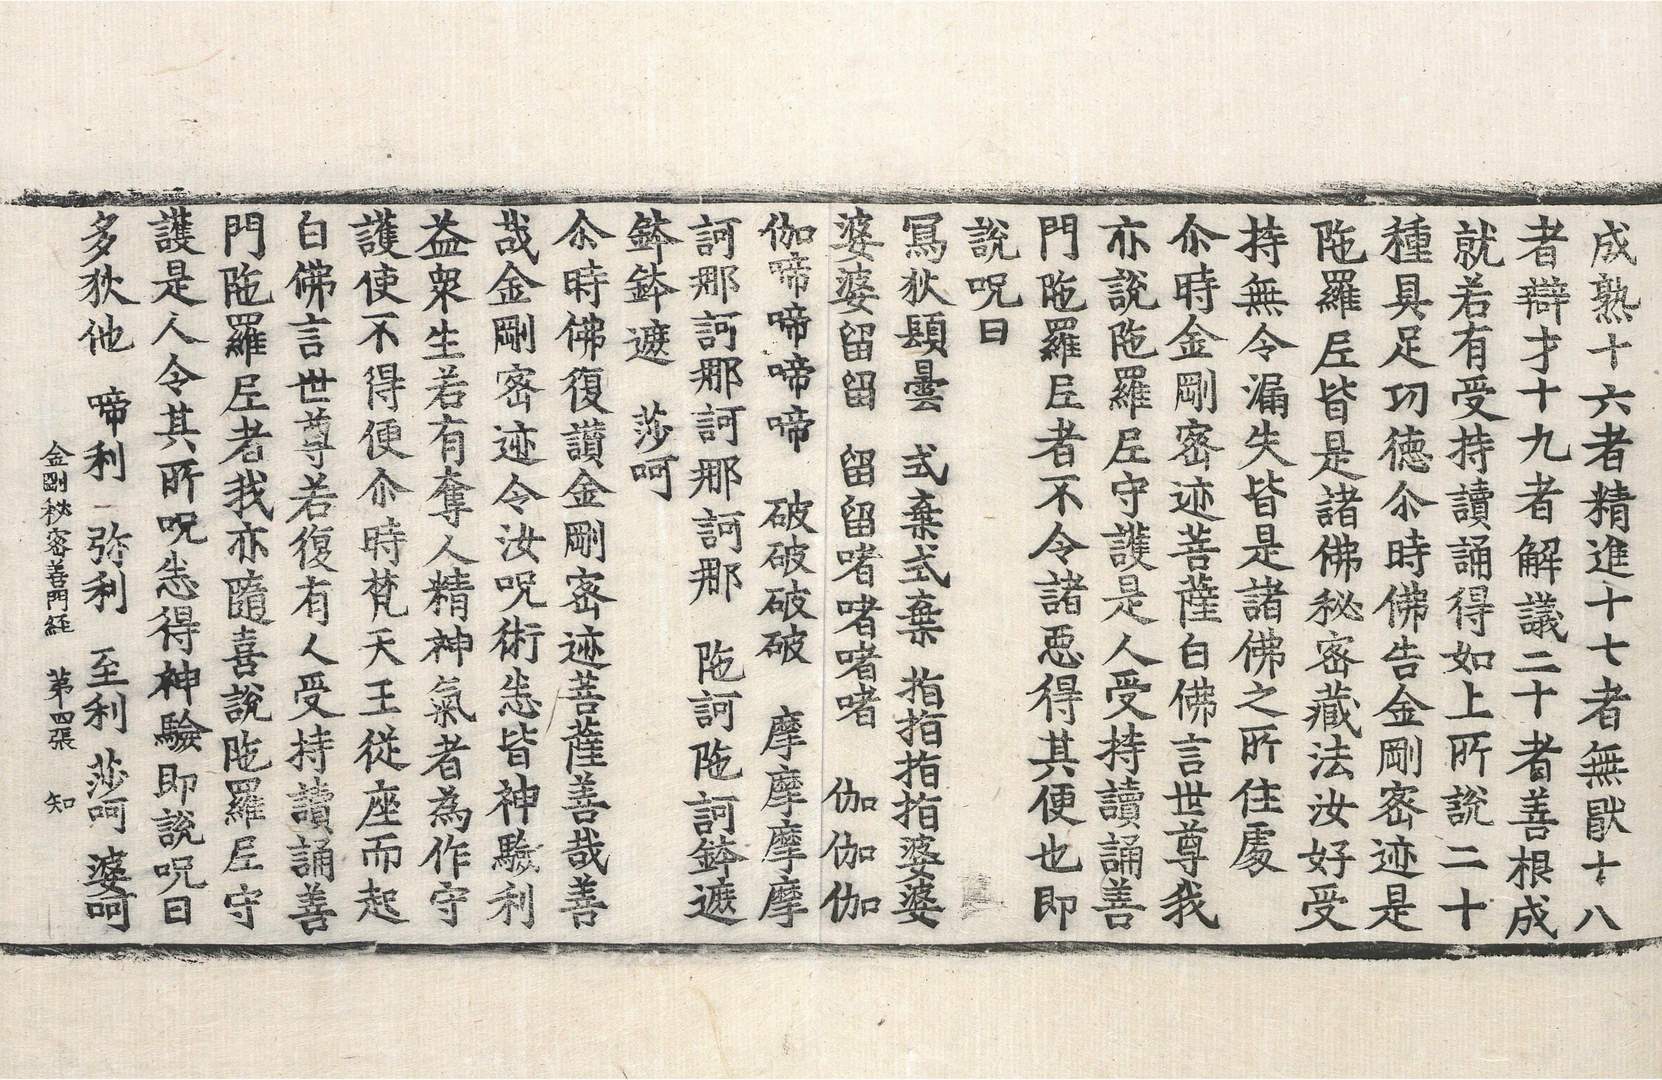 成熟十六者精進十七者無猒十八
者辯才十九者解議二十者善根成
就若有受持讀誦得如上所說二十
種具足功德尒時佛告金剛密迹是
陁羅𡰱皆是諸佛秘密藏法汝好受
持無令漏失皆是諸佛之所住處
尒時金剛密迹菩薩白佛言世尊我
亦說陁羅𡰱守護是人受持讀誦善
門陁羅𡰱者不令諸惡得其便也即
說呪曰
冩狄題曇 式棄式棄 指指指指婆婆
婆婆留留 留留啫啫啫啫 伽伽伽
伽啼啼啼啼 破破破破 摩摩摩摩
訶那訶那訶那訶那 陁訶陁訶鉢遮
鉢鉢遮 莎呵
尒時佛復讚金剛密迹菩薩善哉善
哉金剛密迹令汝呪術悉皆神驗利
益衆生若有奪人精神氣者為作守
護使不得便尒時梵天王從座而起
白佛言世尊若復有人受持讀誦善
門陁羅𡰱者我亦隨喜說陁羅𡰱守
護是人令其所呪悉得神驗即說呪曰
多狄他 啼利 弥利 至利莎呵 婆呵
金剛秘密善門經 第四張 知